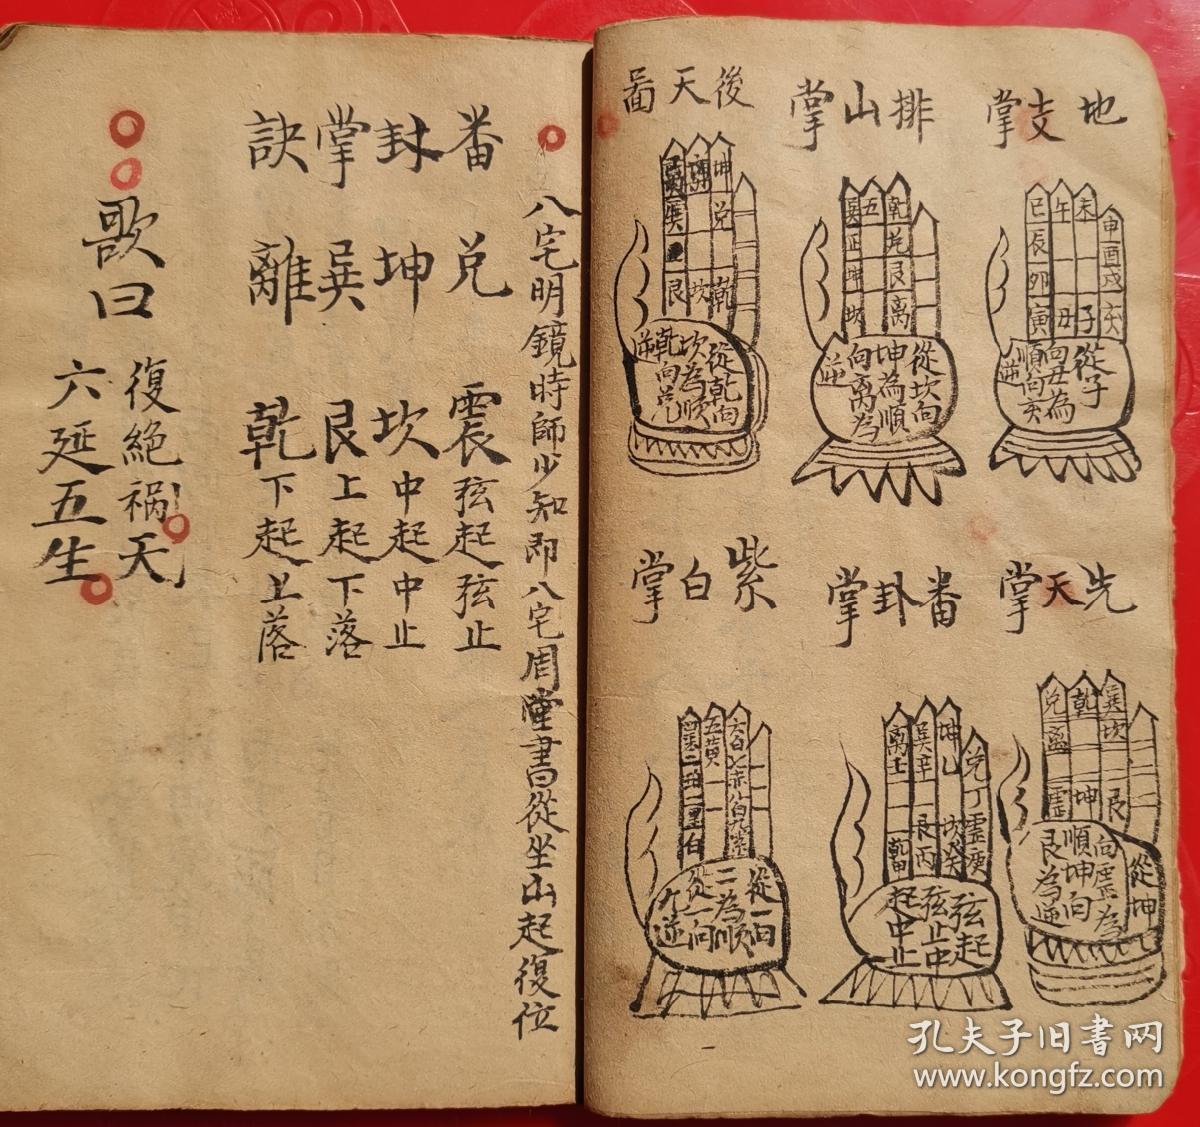 地支掌
巳辰卯寅
午 丑
未 子
申酉戌亥
從子
向丑為
順向亥
逆
排山掌
巽正坤坎
五
乾兌艮离
從坎向
坤為順
向离為
逆
後天啚
坤兌乾
坎
艮
從乾向
坎為順
乾向兌
逆
先天掌
兌
乾 坤
巽坎 艮
從坤
向震為
順坤向
艮為逆
番卦掌
离壬 乾甲
巽辛 艮丙
坤乙 坎癸
兌丁震庚
弦起
弦止中
起中止
紫白掌
五黃
六白七赤八白九紫
從一向
二為順
從一向
九逆
八宅明鏡時師少知即八宅周堂書從坐山起復位
番卦掌訣
兌 震弦起弦止
坤 坎中起中止
巽 艮上起下落
離 乾下起上落
歌曰
復絕禍天
六延五生
孔夫子旧书网
www.kongfz.com